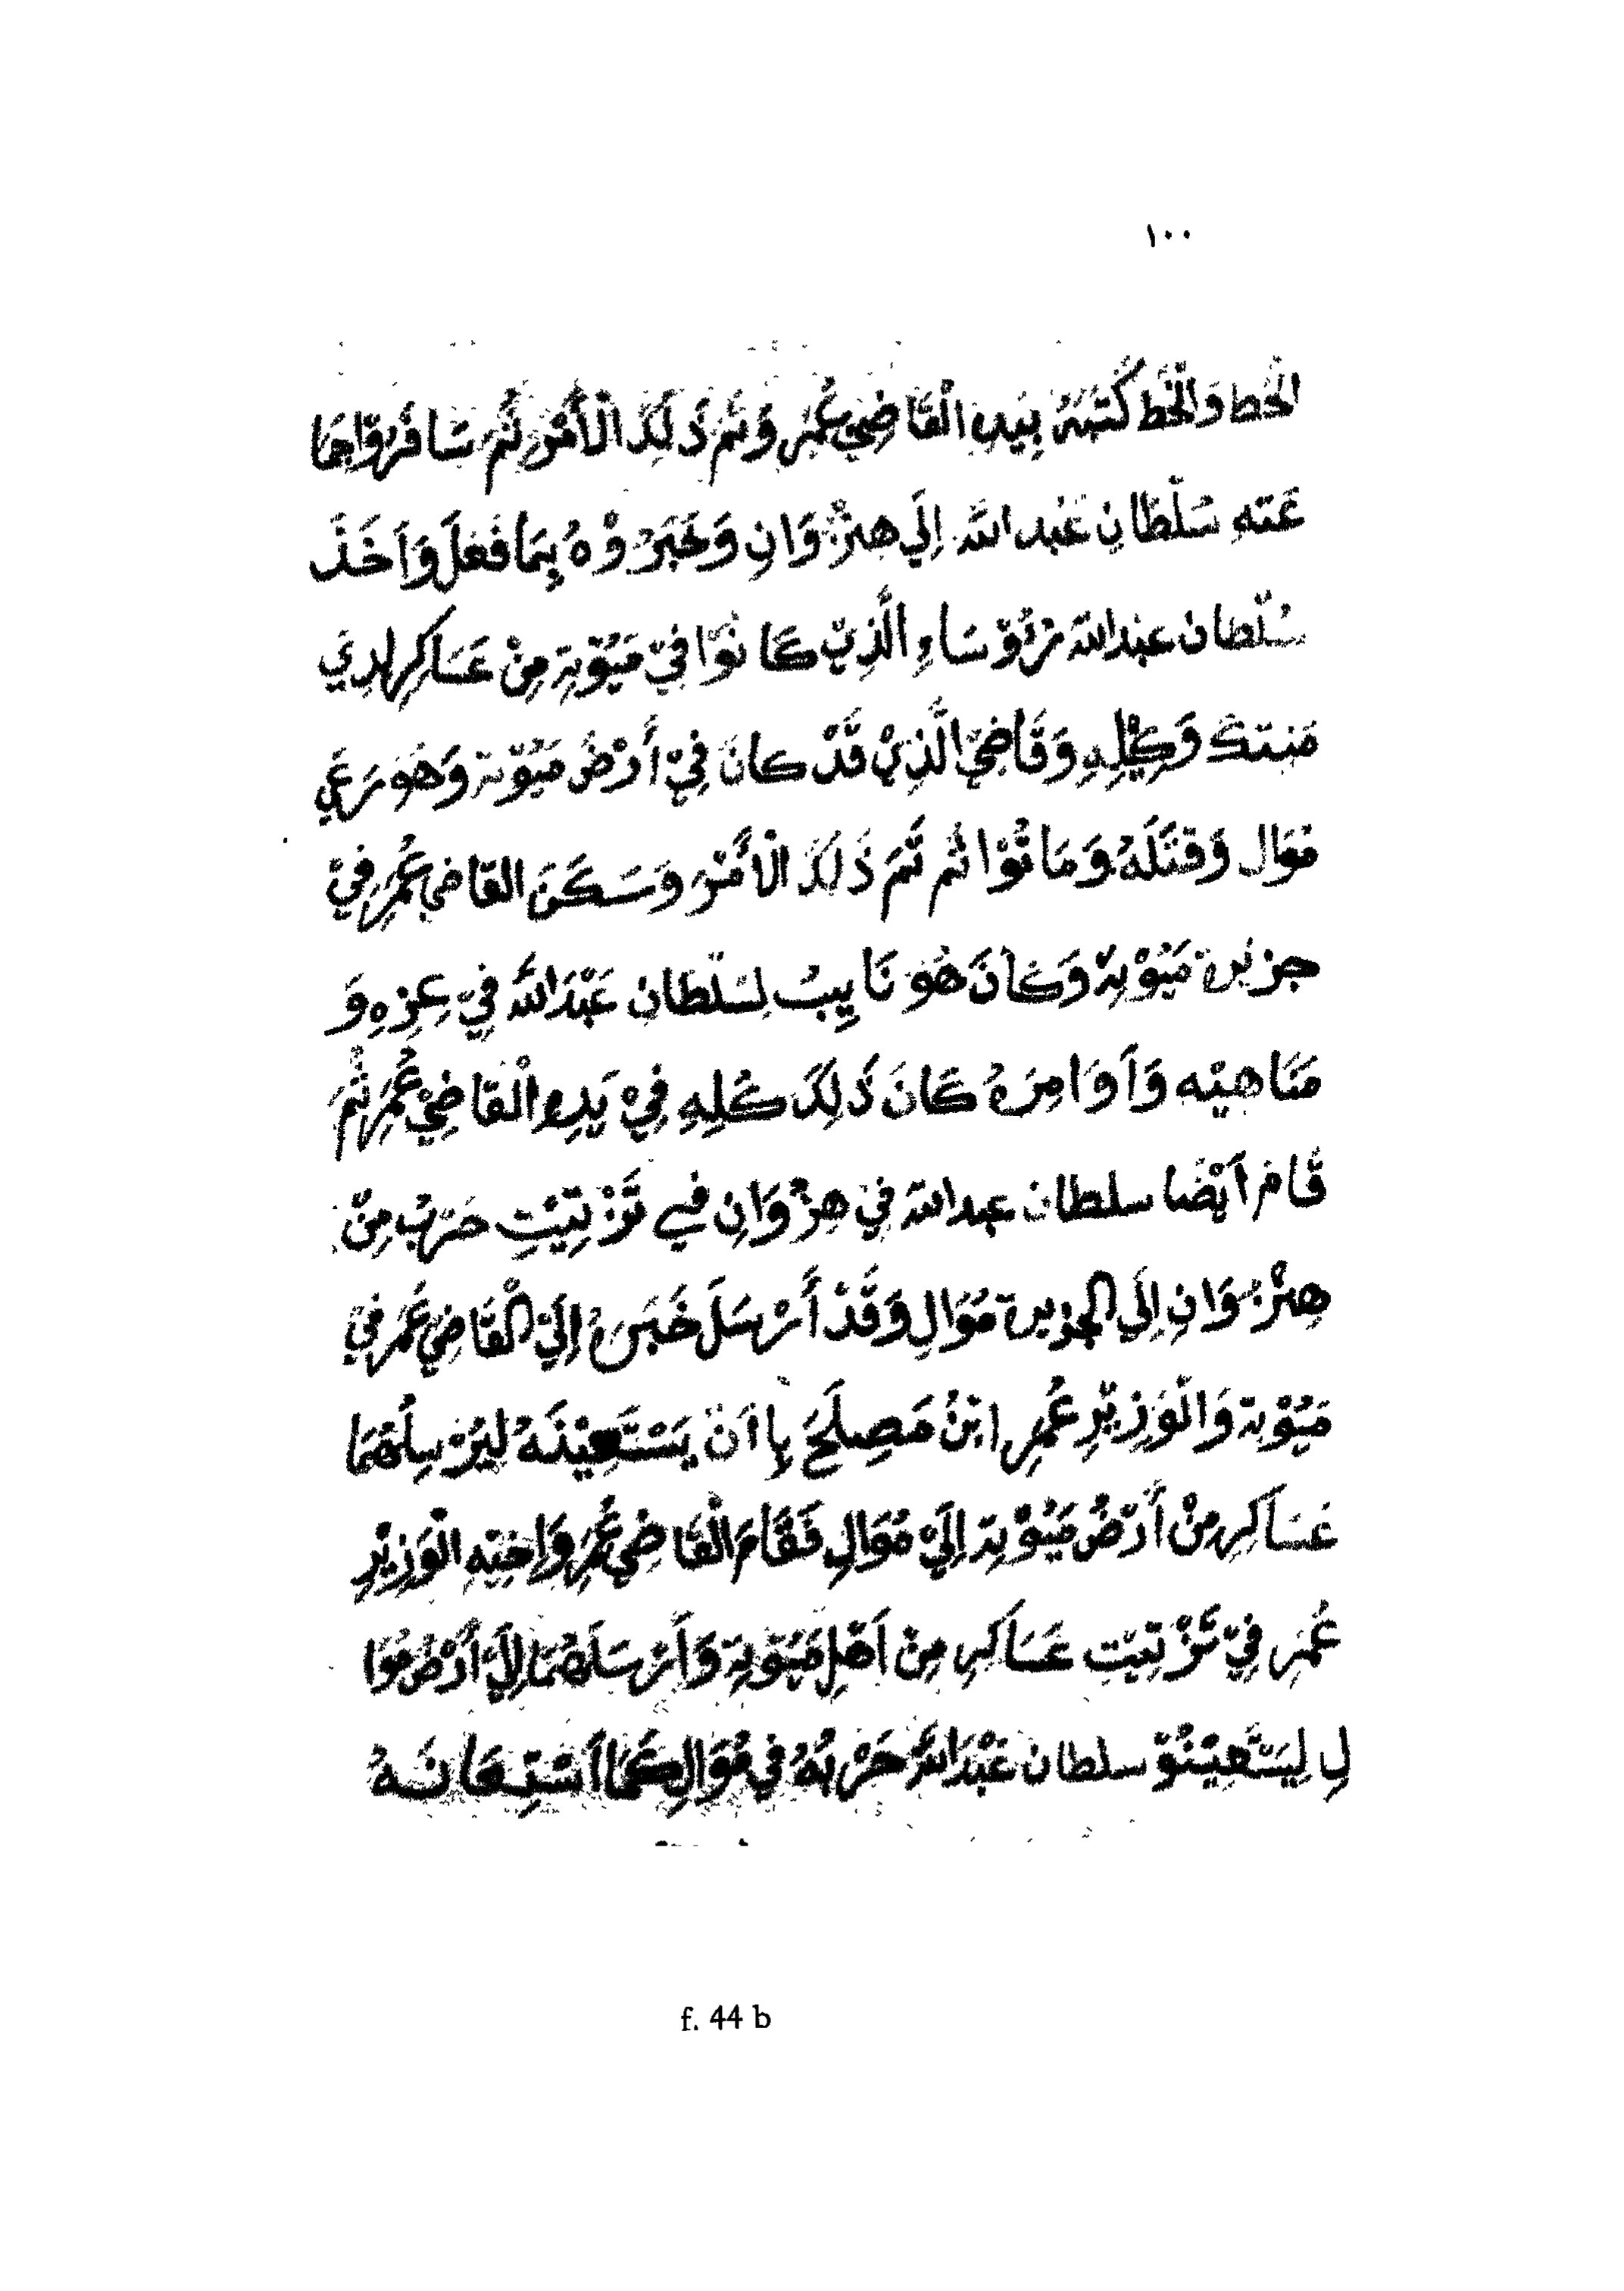 ١٠٠
الخَط وَالْخَط كُتْبَهُ بِيَدِ الْقَاضِيْ عُمَر وَتَمَّ ذَلِكَ الْأَمْر ثُمَّ سَافَرُوْا جَمَا
عَتِهِ سُلْطَانِ عَبْد اللَّه اِلَي هِنْزُوَانِ وَخَبَرُوْهُ بِمَا فَعَلَ وَاَخَذَ
سُلْطَان عبد الله رُؤُوْسَاءِ الَّذِيْ كَانُوْا فِيْ مَيُوْتِة مِنْ عَسَاكِر اِدِي
مَنِتك وَكِيْلِهِ وَقَاضِيَ الَّذِيْ قَدْ كانَ فِيْ أَرْضُ مَيُوْتة وَهُوَ رَعَي
مُوَال وَقَتَلَهُ وَمَاتُوْا ثُمَّ تَمَّ ذَلِكَ الْأَمْر وَسَكَنَ القاضي عُمَر فِيْ
جزيرة مَيُوْتِة وَكَانَ هُوَ نَايِبُ لسُلْطان عَبْدَاللَّه فِيْ عِزِهِ وَ
مَنَاهِيْه وَاَوَامِرَهُ كَانَ ذَلِكَ كُلِهِ فِيْ يَدِ الْقَاضِيْ عُمَر ثُمَّ
قَامَ اَيْضًا سلطان عبد الله فِيْ هِنْزُوَانِ فِي تَرْتِيْتِ حَرْبُ مِنْ
هِنْزُوَانِ اِلَي الجزيرة مُوَالِ وَقَدْ أَرْسَلَ خَبَرَهُ اِلَيَ الْقَاضِيْ عُمَر فِيْ
مَيُوْتة وَالْوَزِيْرِ عُمَر ابْنُ مَصِلَحَ بِا اَنْ يَسْتَعِيْنَهُ لِيُرْسِلَهُمَا
عَسَاكِر مِنْ أَرْضُ مَيُوْتِة اِلَيْ مُوَالِ فَقَامَ الْقَاضِيْ عُمَر وَاَخِيْهِ الْوَزِيْرِ
عُمَر فِيْ تَرْتِيْتِ عَسَاكِر مِنْ اَهْلِ مَيُوْتِة وَأَرْسَلَهُمَا اِلَيْ أَرْضُ مُوَا
لِ لِيَسْتَعِيْنُوْ سلطان عَبْدَاللَّه حَرْبُهُ فِي مُوَالِ كَمَا اَسْتِعَانَهُ
f. 44 b